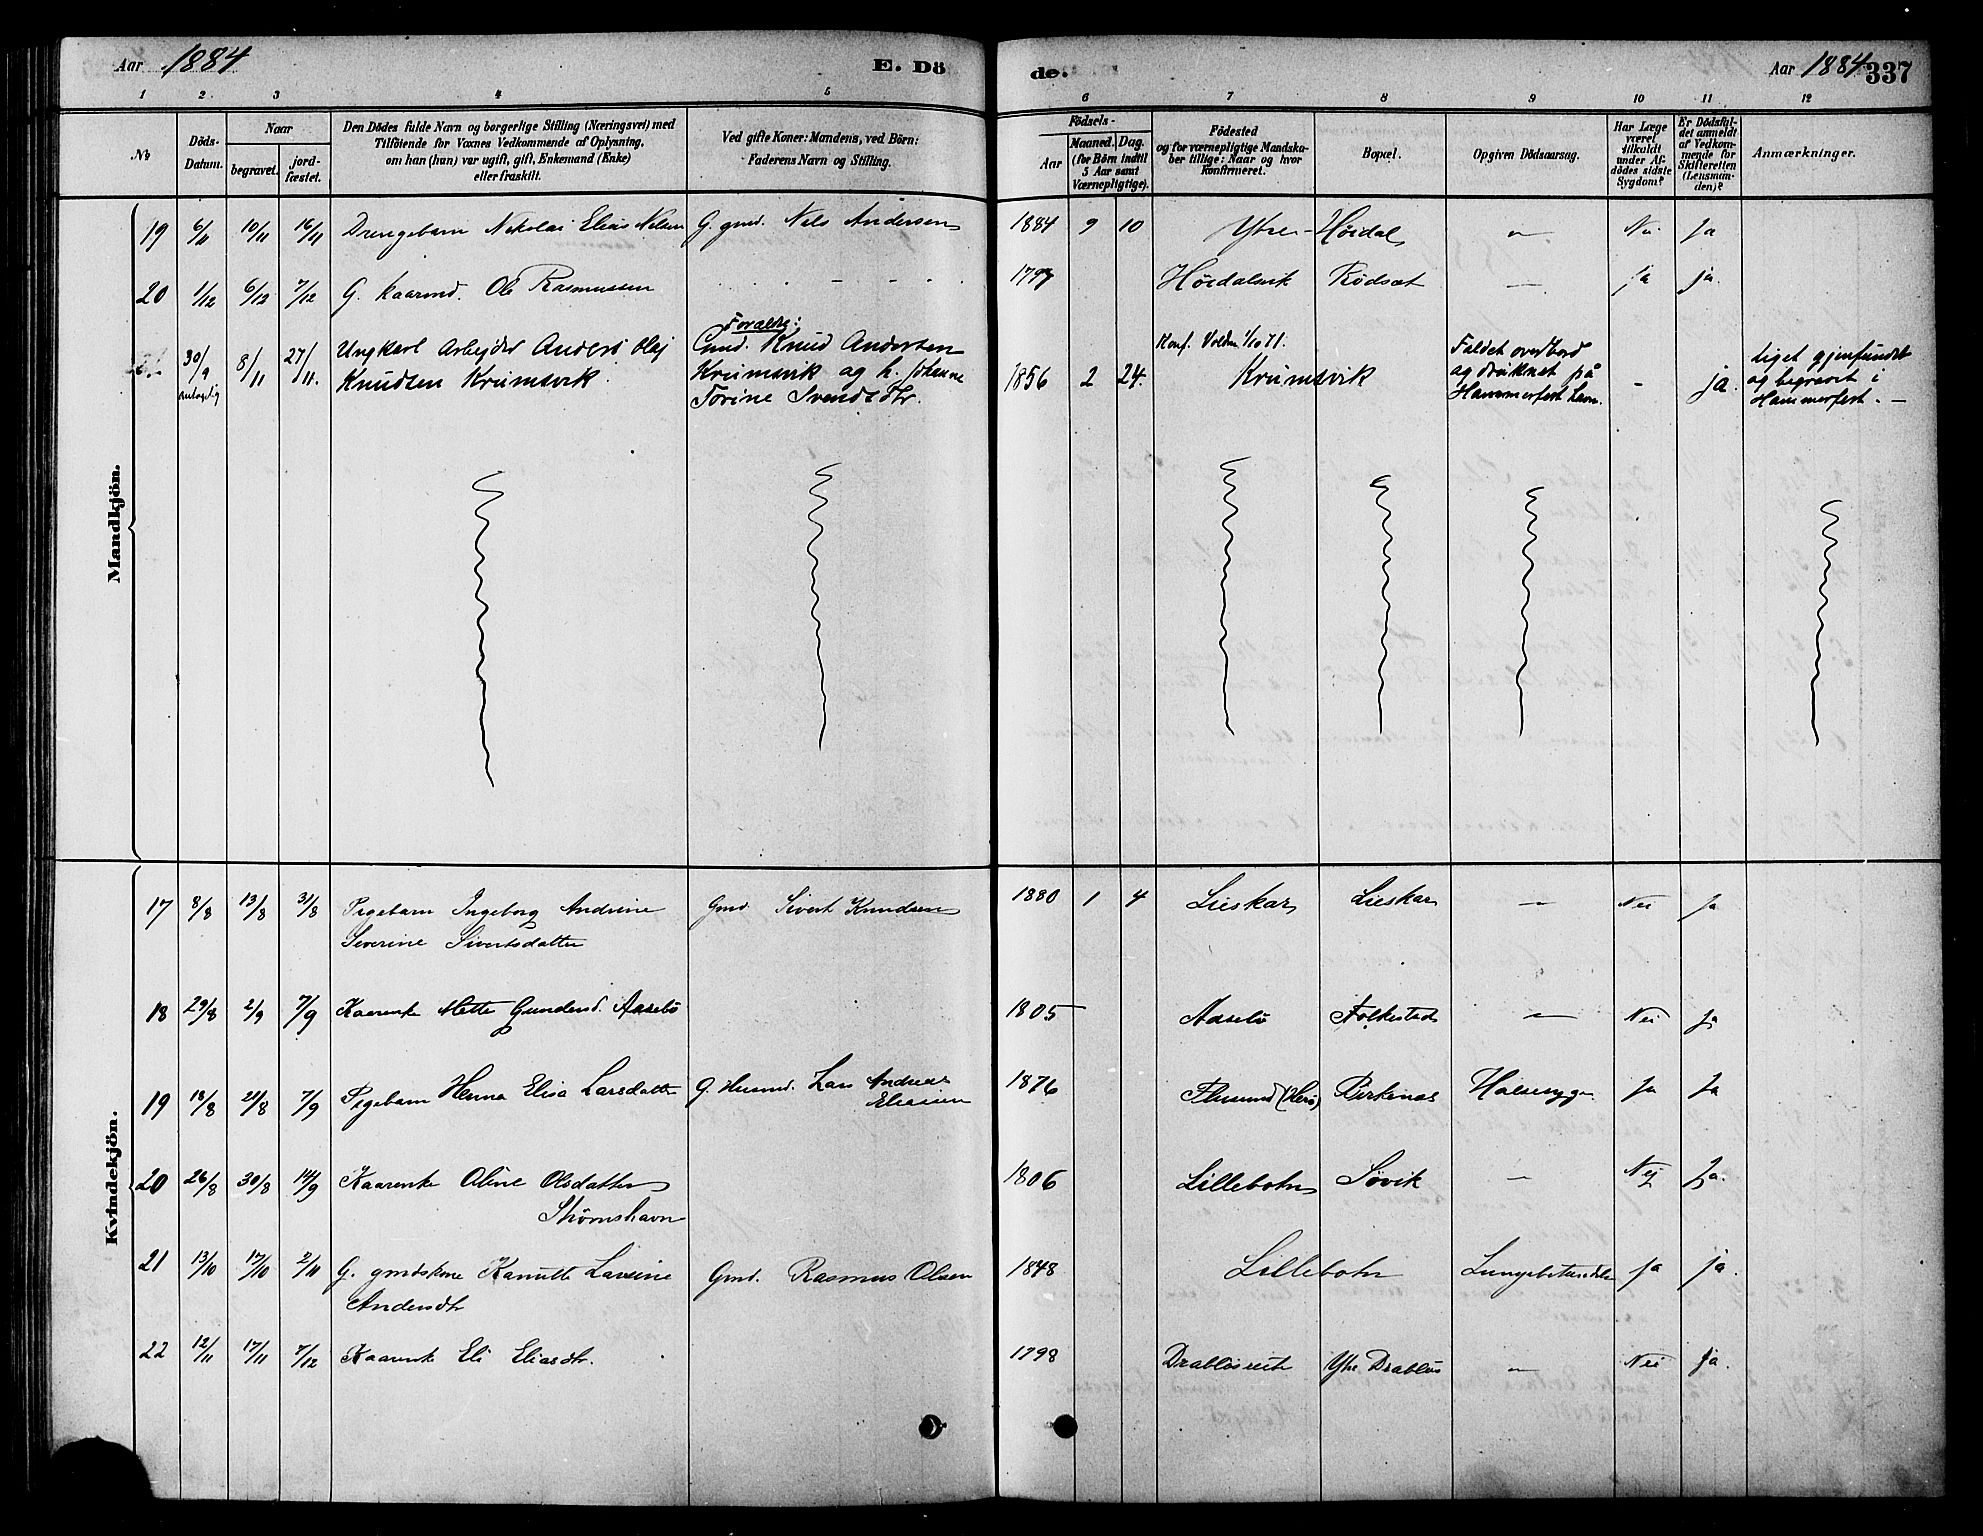 Aar 1884
E. Dö
de.
Aar 1884
337
1 2 3 4 5 6 7 8 9 10 11 12
No
Döds-Datum.
Naar
begravet.
jord-fæstet.
Den Dödes fulde Navn og borgerlige Stilling (Næringsvei) med
Tilföiende for Voxnes Vedkommende af Oplysning,
om han (hun) var ugift, gift, Enkemand (Enke)
eller fraskilt.
Ved gifte Koner: Mandens, ved Börn:
Faderens Navn og Stilling.
Födsels-
Aar
Maaned. Dag.
(for Börn indtil
5 Aar samt
Værnepligtige).
Födested
og for værnepligtige Mandska-
ber tillige: Naar og hvor
konfirmeret.
Bopæl.
Opgiven Dödsaarsag.
Har Læge
været
tilkaldt
under Af-
dödes sidste
Sygdom?
Er Dödsfal-
det anmeldt
af Vedkom-
mende for
Skifteretten
(Lensman-
den)?
Anmærkninger.
Mandkjön.
19 6/11 10/11 16/11 Drengebarn Nikolai Elias Nilsen G. gmd. Nils Andersen 1884 9 10 Ytre-Höidal — Nei Ja
20 1/12 6/12 7/12 G. kaarmd. Ole Rasmussen 1797 Höidalsvik Rödsæt — ja ja.
30/9 antagelig 8/11 27/11. Ungkarl Arbejder Anders Olaj
Knudsen Krumsvik.
Forældre:
Gmd. Knud Andersen
Krumsvik og h. Johanne
Torine Svendsdtr.
1856 2 24.
Konf. Volden 1/10 71.
Krumsvik
Faldet overbord
og druknet på
Hammerfest havn.
- ja.
Liget gjenfundet
og begravet i
Hammerfest. —
Kvindekjön.
17 8/8 13/8 31/8 Pigebarn Ingeborg Andrine
Severine Sivertsdatter
Gmd Sivert Knudsen 1880 1 4 Lieskar Lieskar — Nei Ja
18 29/8 2/9 7/9 Kaarenke Mette Gundersd. Aasebö 1805 Aasebö Folkestad — Nei Ja
19 18/8 21/8 7/9 Pigebarn Henna Elisa Larsdatter G. Husmd. Lars Andreas
Eliassen
1876 Flusund (Herö) Birkenæs Halssyge Ja Ja
20 26/8 30/8 14/9 Kaarenke Oline Olsdatter
Strömshavn
1806 Lillebotn Sövik — Nej Ja.
21 13/10 17/10 2/11 G. gmdskone Kanutte Lavine
Andersdtr
Gmd. Rasmus Olsen 1848 Lillebotn Lungebetændelse ja ja.
22 12/11 17/11 7/12 Kaarenke Eli Eliasdtr. 1798 Drabløs Ytre Drabløs — Nei ja.